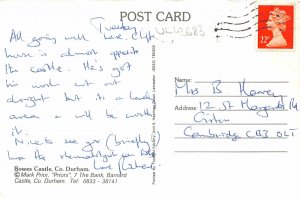 POST CARD
Tuesday
All going well here. Cliff's
house is almost opposite
the castle. He's got
his work cut out
alright but its a lovely
area & will be worth
it.
Nice to see you (briefly)
Love
Bowes Castle, Co. Durham.
© Mark Prior, "Priors", 7 The Bank, Barnard
Castle, Co. Durham. Tel: 0833 - 38141
22P
Mrs B Harvey
12 St Margarets Rd
Girton
Cambridge CB3 0LT